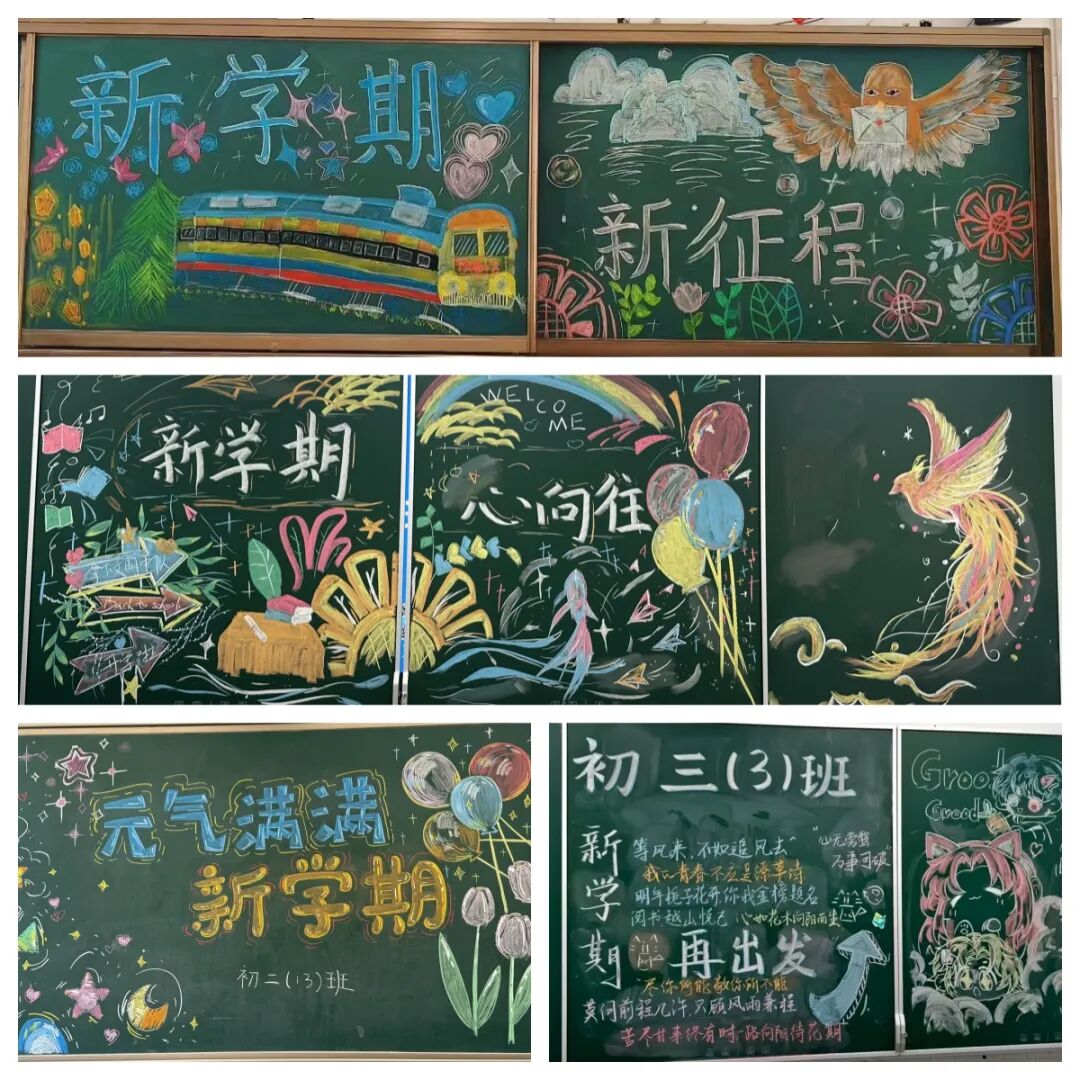 新学期
新征程
新学期
Back to school
WELCOME
心向往
元气满满
新学期
初二(13)班
初三(3)班
新学期
等风来,不如追风去
"心无旁骛
万事可破"
我的青春不应是潦草诗
明年栀子花开你我金榜题名
阅书越山悦己 心如花木向阳而生
再出发
尽你所能敬你所不能
莫问前程几许,只顾风雨兼程
苦尽甘来终有时一路向阳待花期
Good
Good